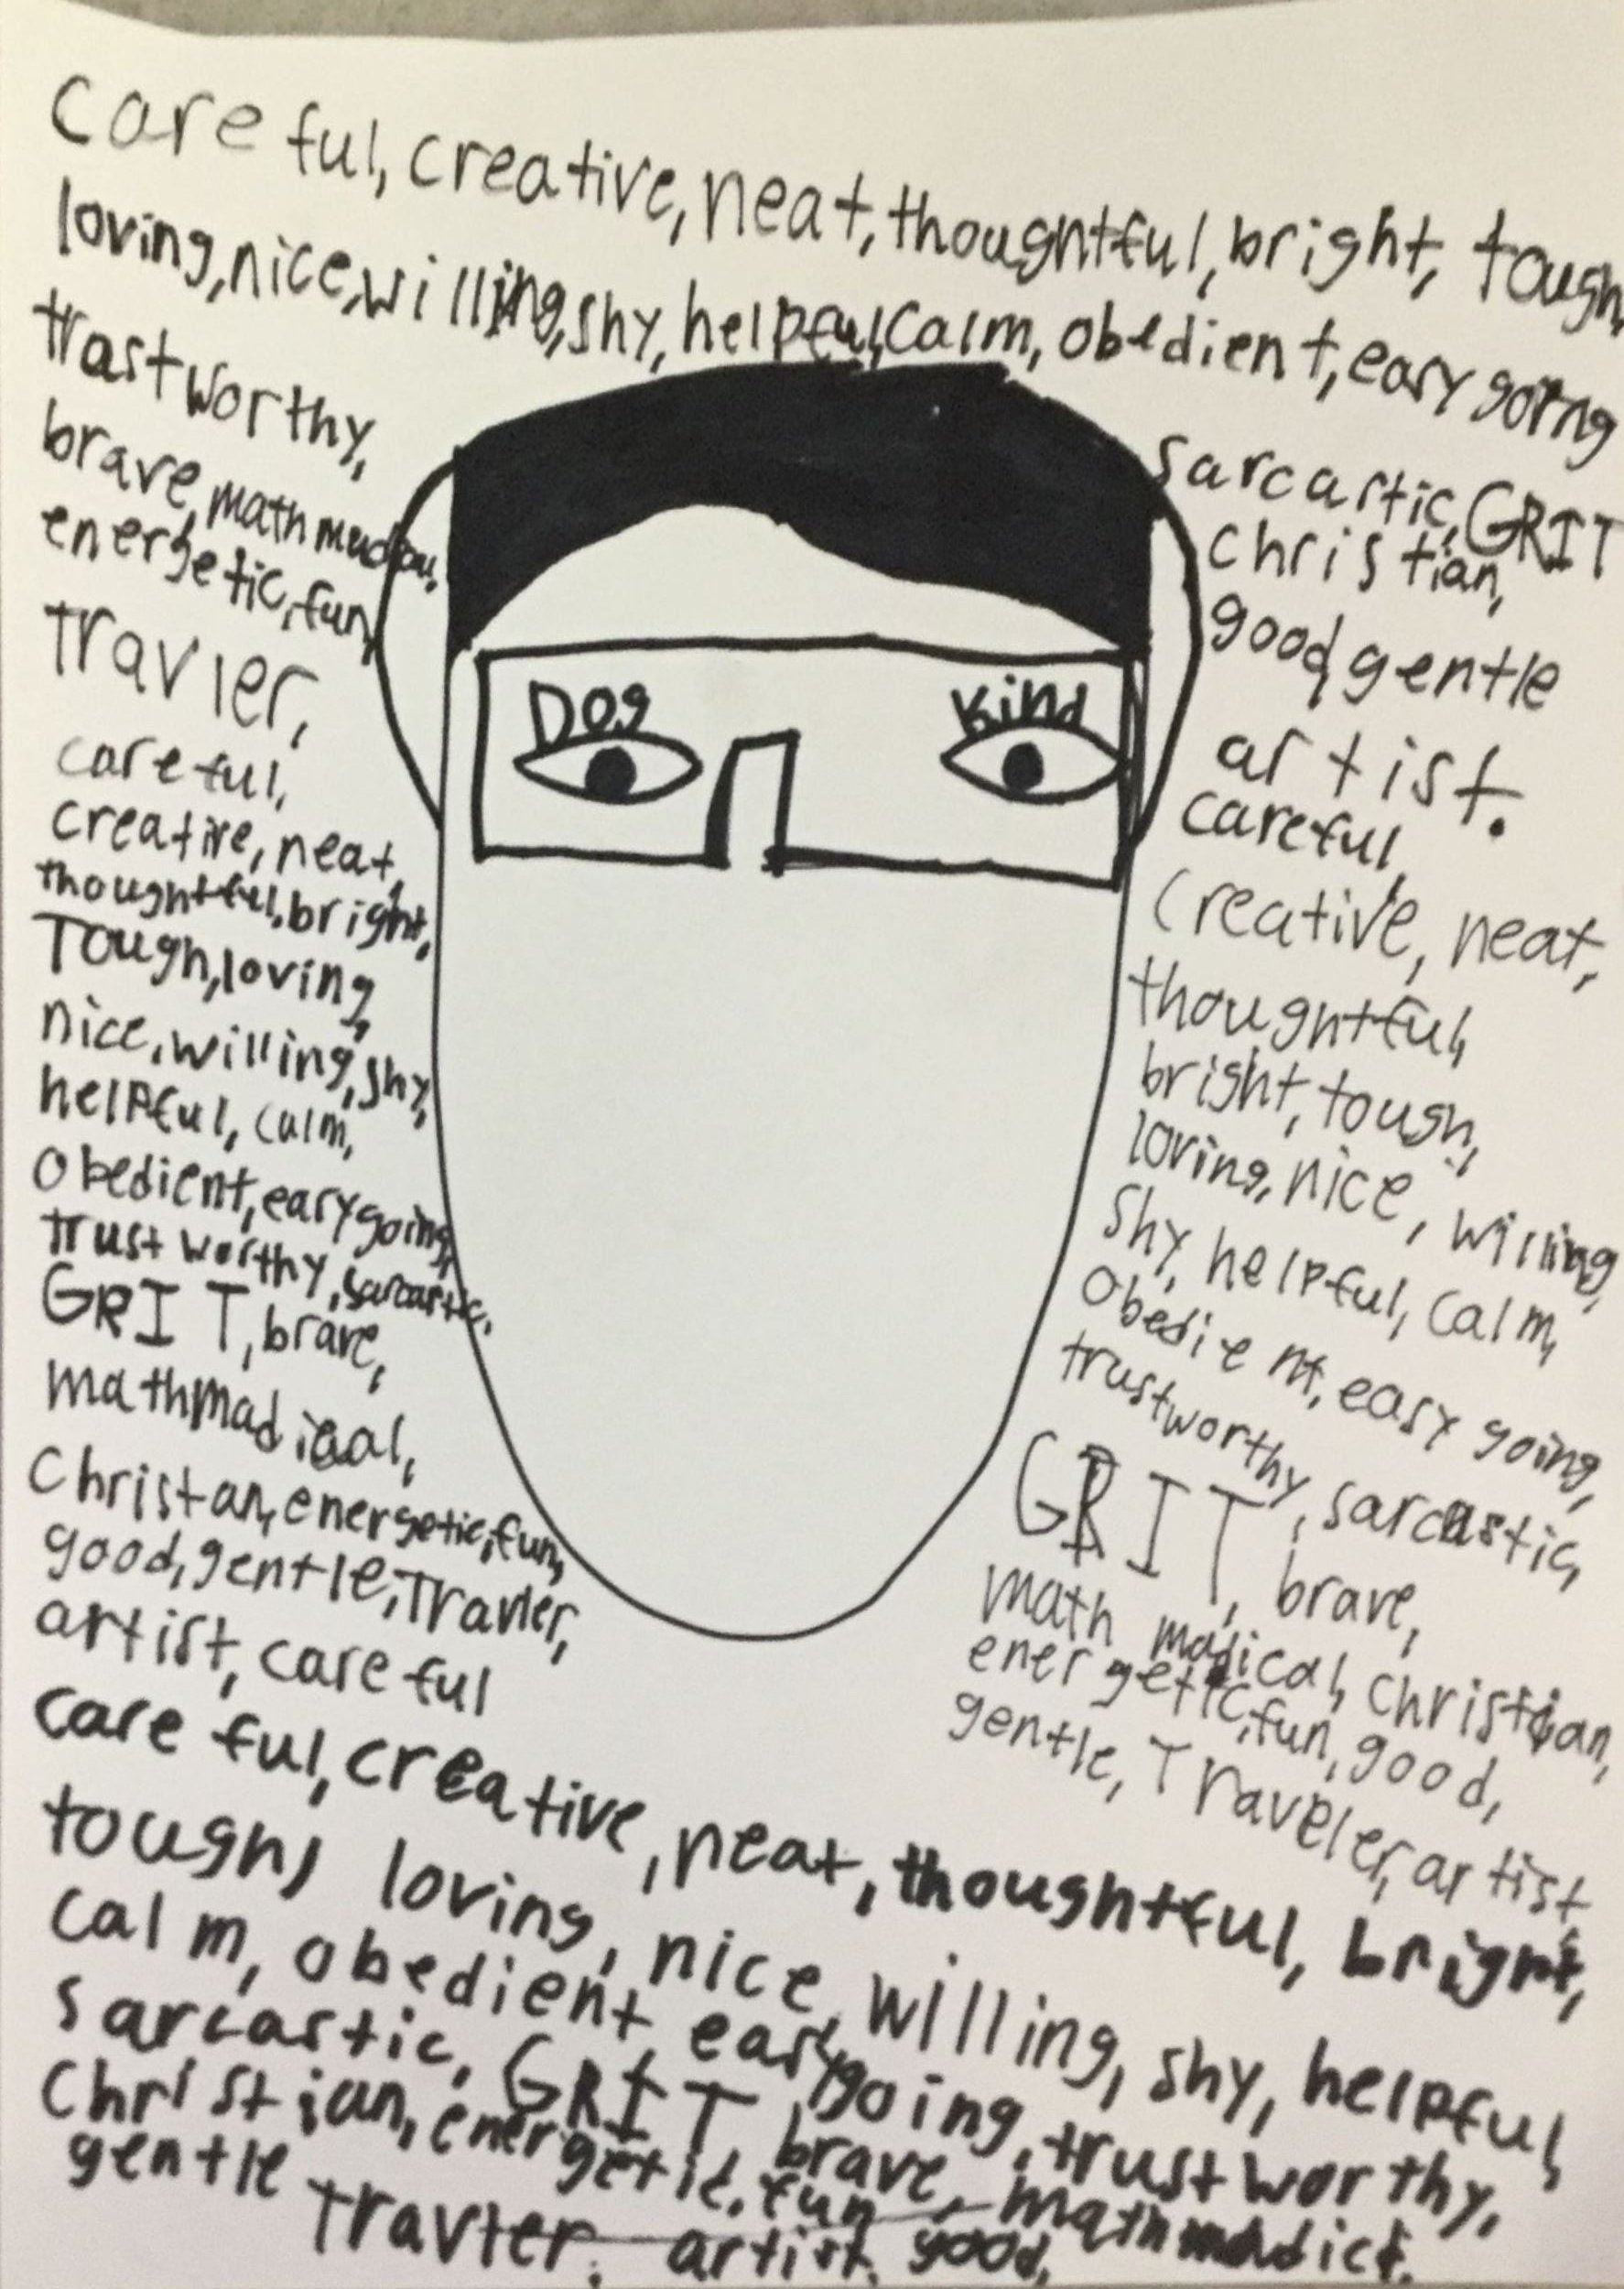 careful, creative, neat, thoughtful, bright, tough,
loving, nice, willing, shy, helpful, calm, obedient, easy going
trastworthy,
brave,
energetic, fun,
Travler,
careful,
creative, neat,
thoughtful, bright,
Tough, loving,
nice, willing, shy,
helpful, calm,
obedient, easygoing,
trust worthy, sarcastic,
GRIT, brave,
mathmadical,
Christan, energetic, fun,
good, gentle, Travler,
artist, careful
Dog
Kind
sarcastic, GRIT
christian,
good, gentle
artist.
careful,
Creative, neat,
thoughtful,
bright, tough,
loving, nice, willing,
Shy, helpful, calm,
obedient, easy going,
trustworthy, sarcastic,
GRIT, brave,
math madical, christian,
energetic, fun, good,
gentle, Traveler, artist,
care ful, creative, neat, thoughtful, bright,
tough, loving, nice, willing, shy, helpful,
calm, obedient, easygoing, trustworthy,
sarcastic, GRIT, brave,
Christian, energetic, fun
gentle Travler. artist. good,